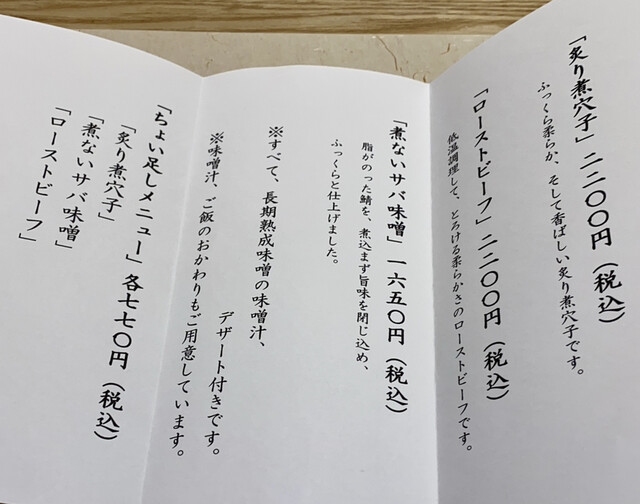 「炙り煮穴子」二二〇〇円（税込）
ふっくら柔らか、そして香ばしい炙り煮穴子です。
「ローストビーフ」二二〇〇円（税込）
低温調理して、とろける柔らかさのローストビーフです。
「煮ないサバ味噌」一六五〇円（税込）
脂がのった鯖を、煮込まず旨味を閉じ込め、
ふっくらと仕上げました。
※すべて、長期熟成味噌の味噌汁、
デザート付きです。
※味噌汁、ご飯のおかわりもご用意しています。
「ちょい足しメニュー」各七七〇円（税込）
「炙り煮穴子」
「煮ないサバ味噌」
「ローストビーフ」